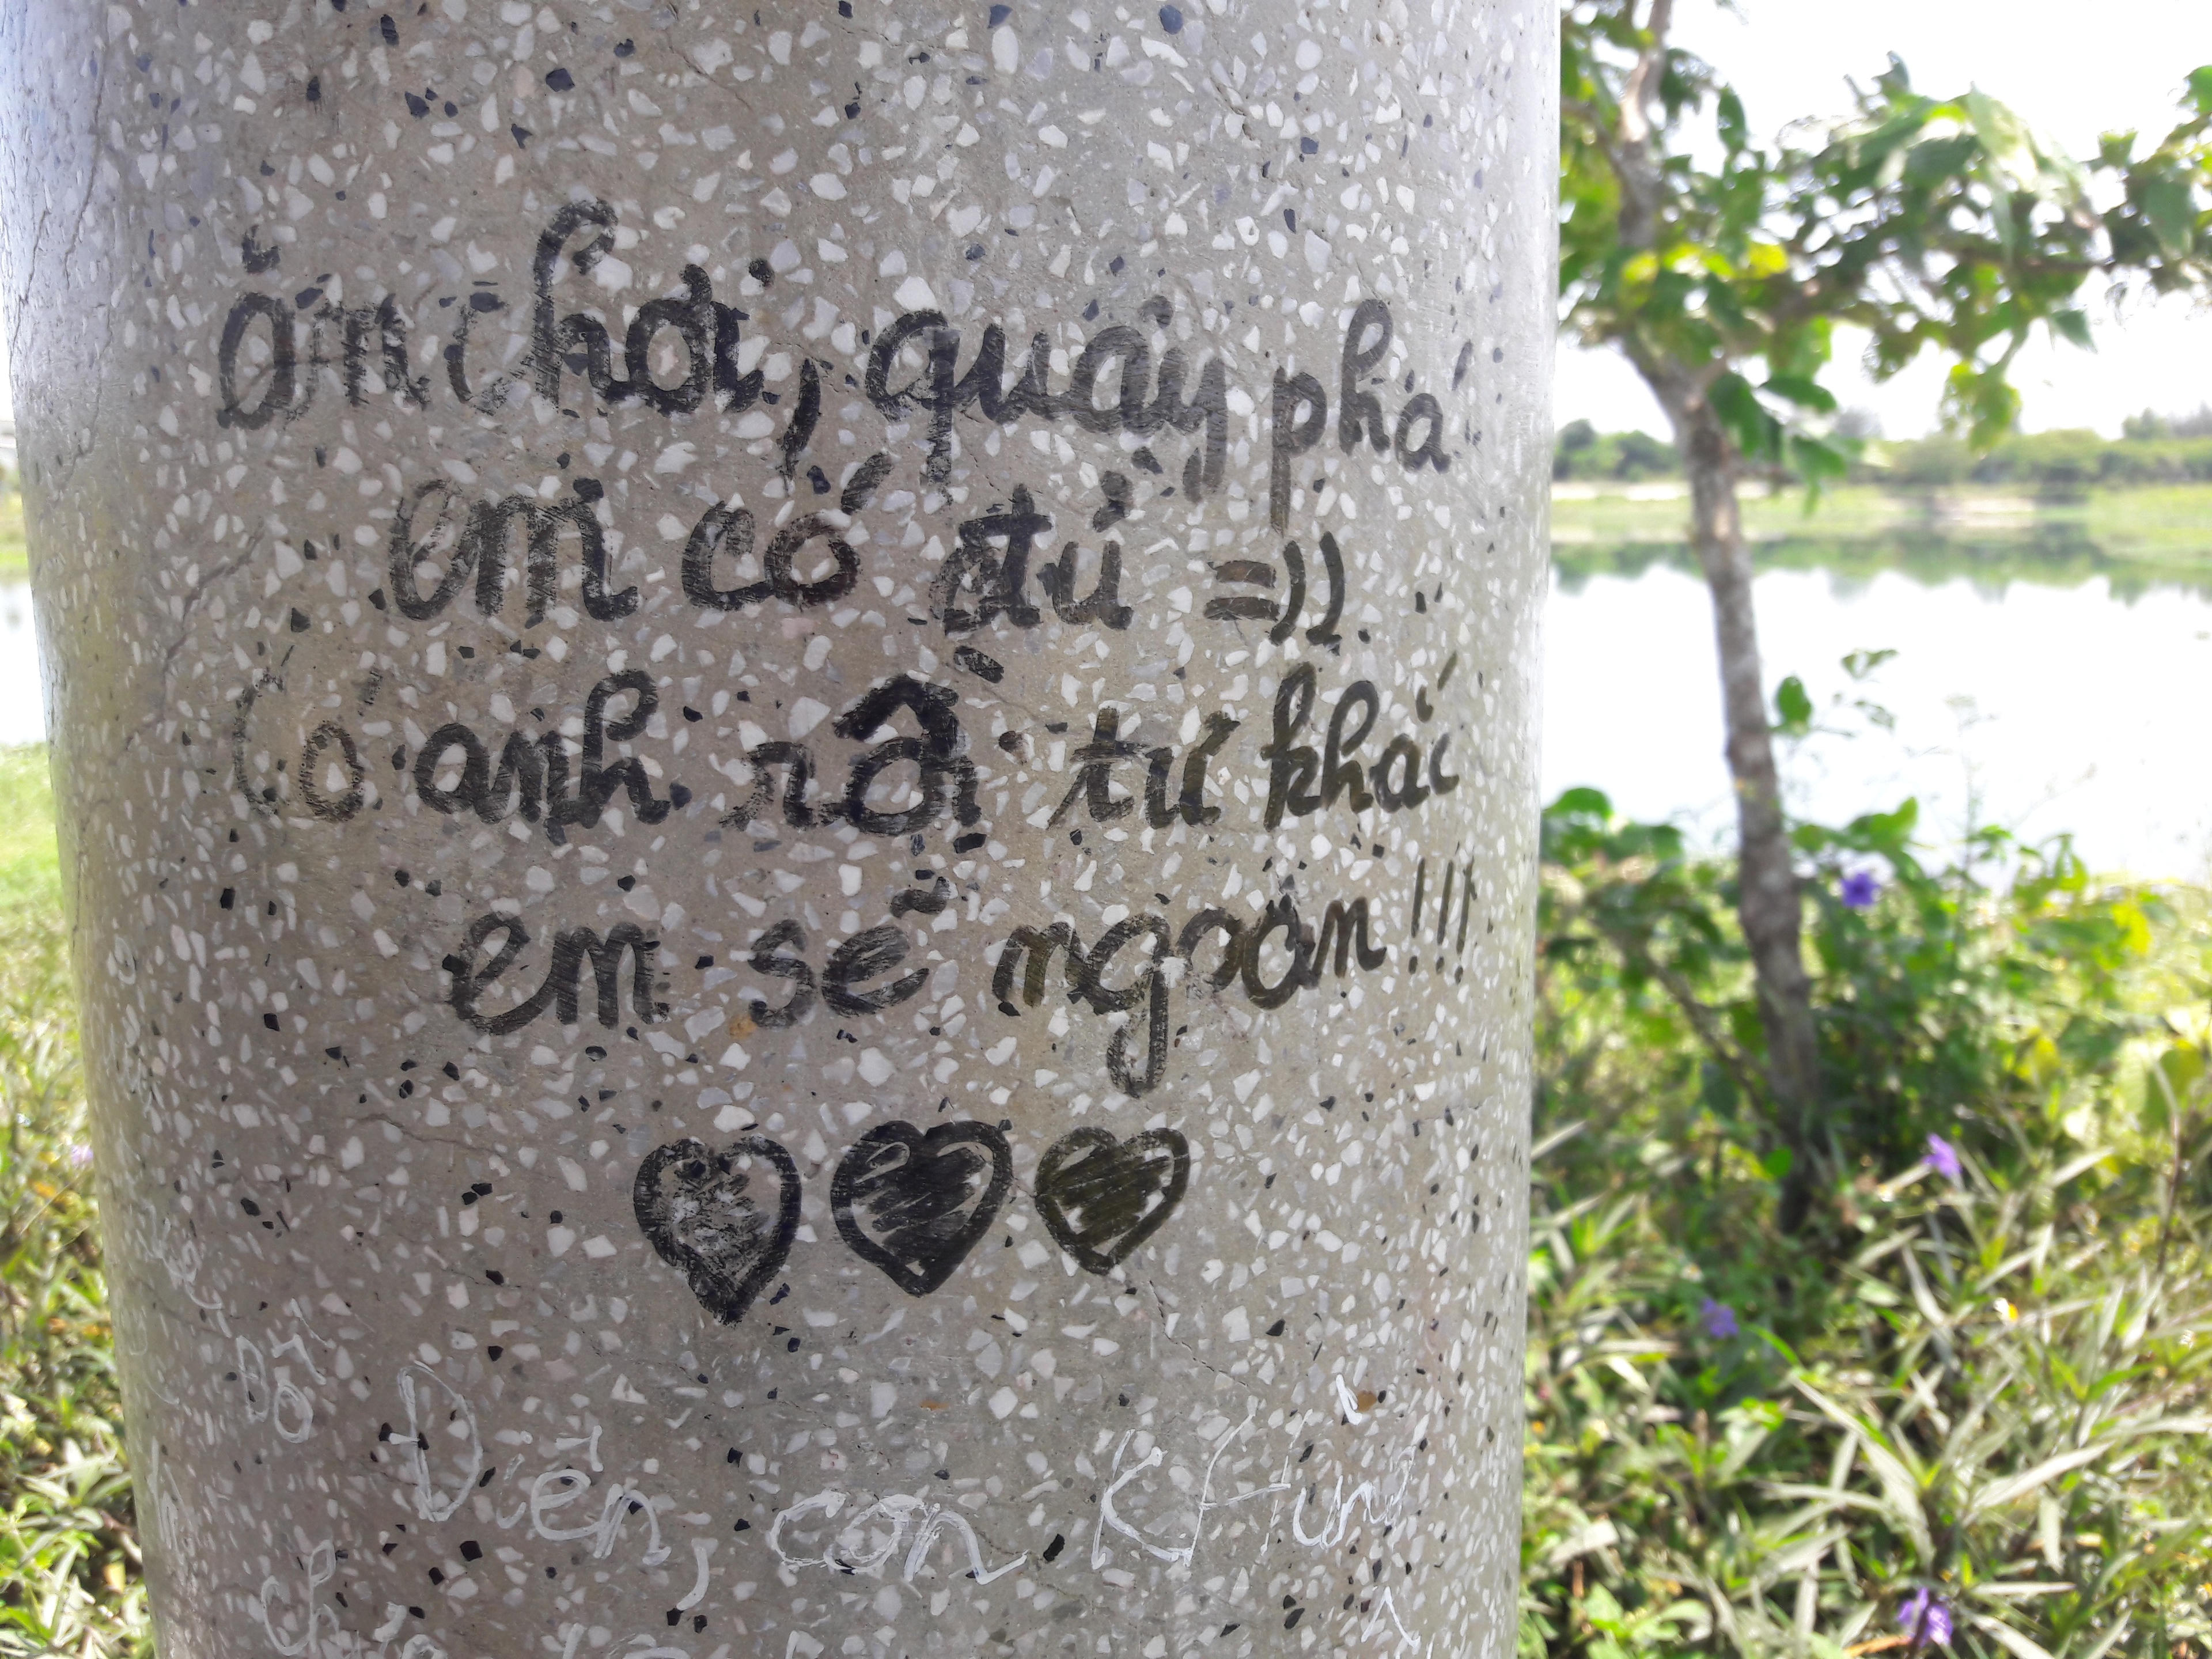 ăn chơi, quậy phá
em có đủ =)).
Có anh rồi tứ khái
em sẽ ngoan !!!
Điên, con KHùng